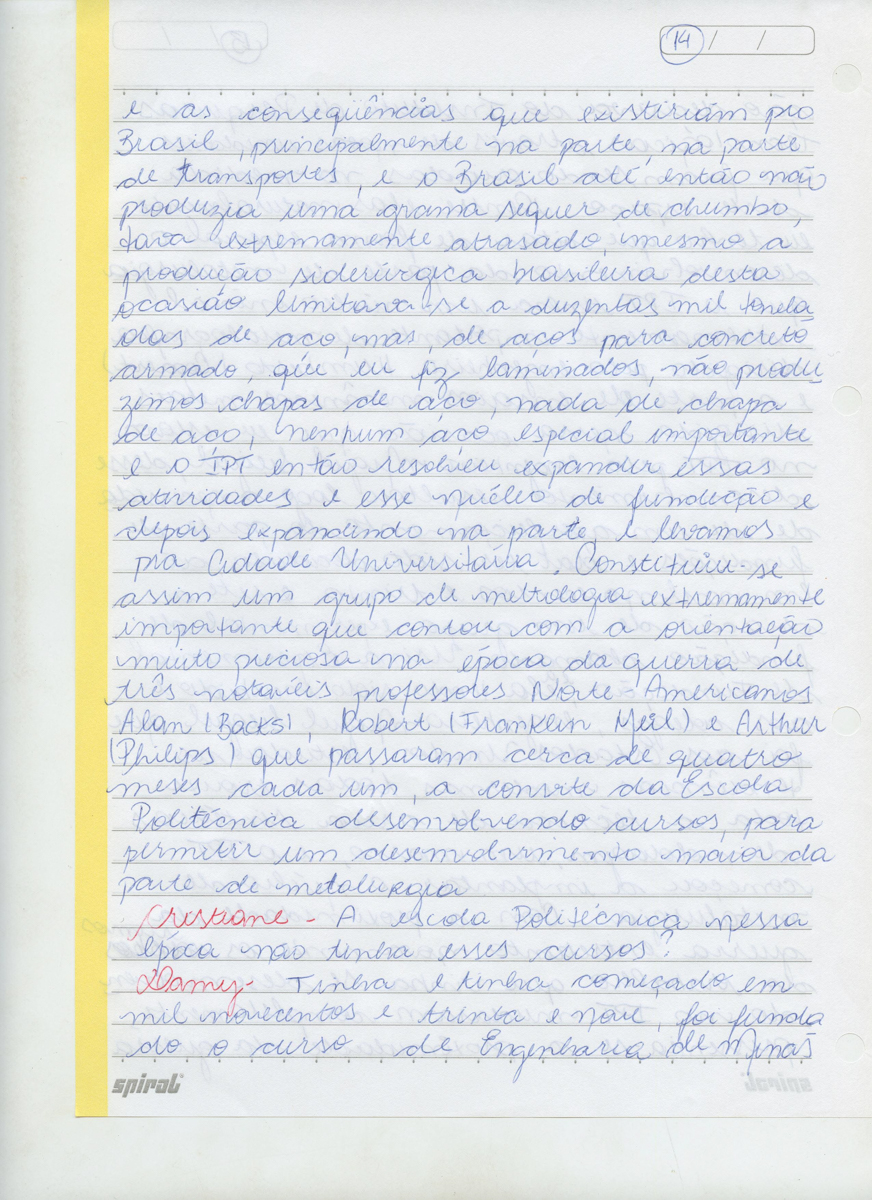 14 / /
e as conseqüências que existiriam pro
Brasil, principalmente na parte, na parte
de transportes, e o Brasil até então não
produzia uma grama sequer de chumbo,
tava extremamente atrasado, mesmo a
produção siderúrgica brasileira desta
ocasião limitava-se a duzentas mil tonela
das de aço, mas, de aços para concreto
armado, que eu fiz laminados, não produ
zimos chapas de aço, nada de chapa
de aço, nenhum aço especial importante
e o IPT então resolveu expandir essas
atividades e esse núcleo de fundição e
depois expandindo na parte, e levamos
pra Cidade Universitária. Constituiu-se
assim um grupo de metrologia extremamente
importante que contou com a orientação
muito preciosa na época da guerra de
três notavéis professores Norte-Americanos
Alan (Backs), Robert (Franklin Meil) e Arthur
(Philips) que passaram cerca de quatro
meses cada um, a convite da Escola
Politécnica desenvolvendo cursos, para
permitir um desenvolvimento maior da
parte de metalurgia
Cristiane - A escola Politécnica nessa
época não tinha esses cursos?
Damy- Tinha e tinha começado em
mil novecentos e trinta e nove, foi funda
do o curso de Engenharia de Minas
spiral